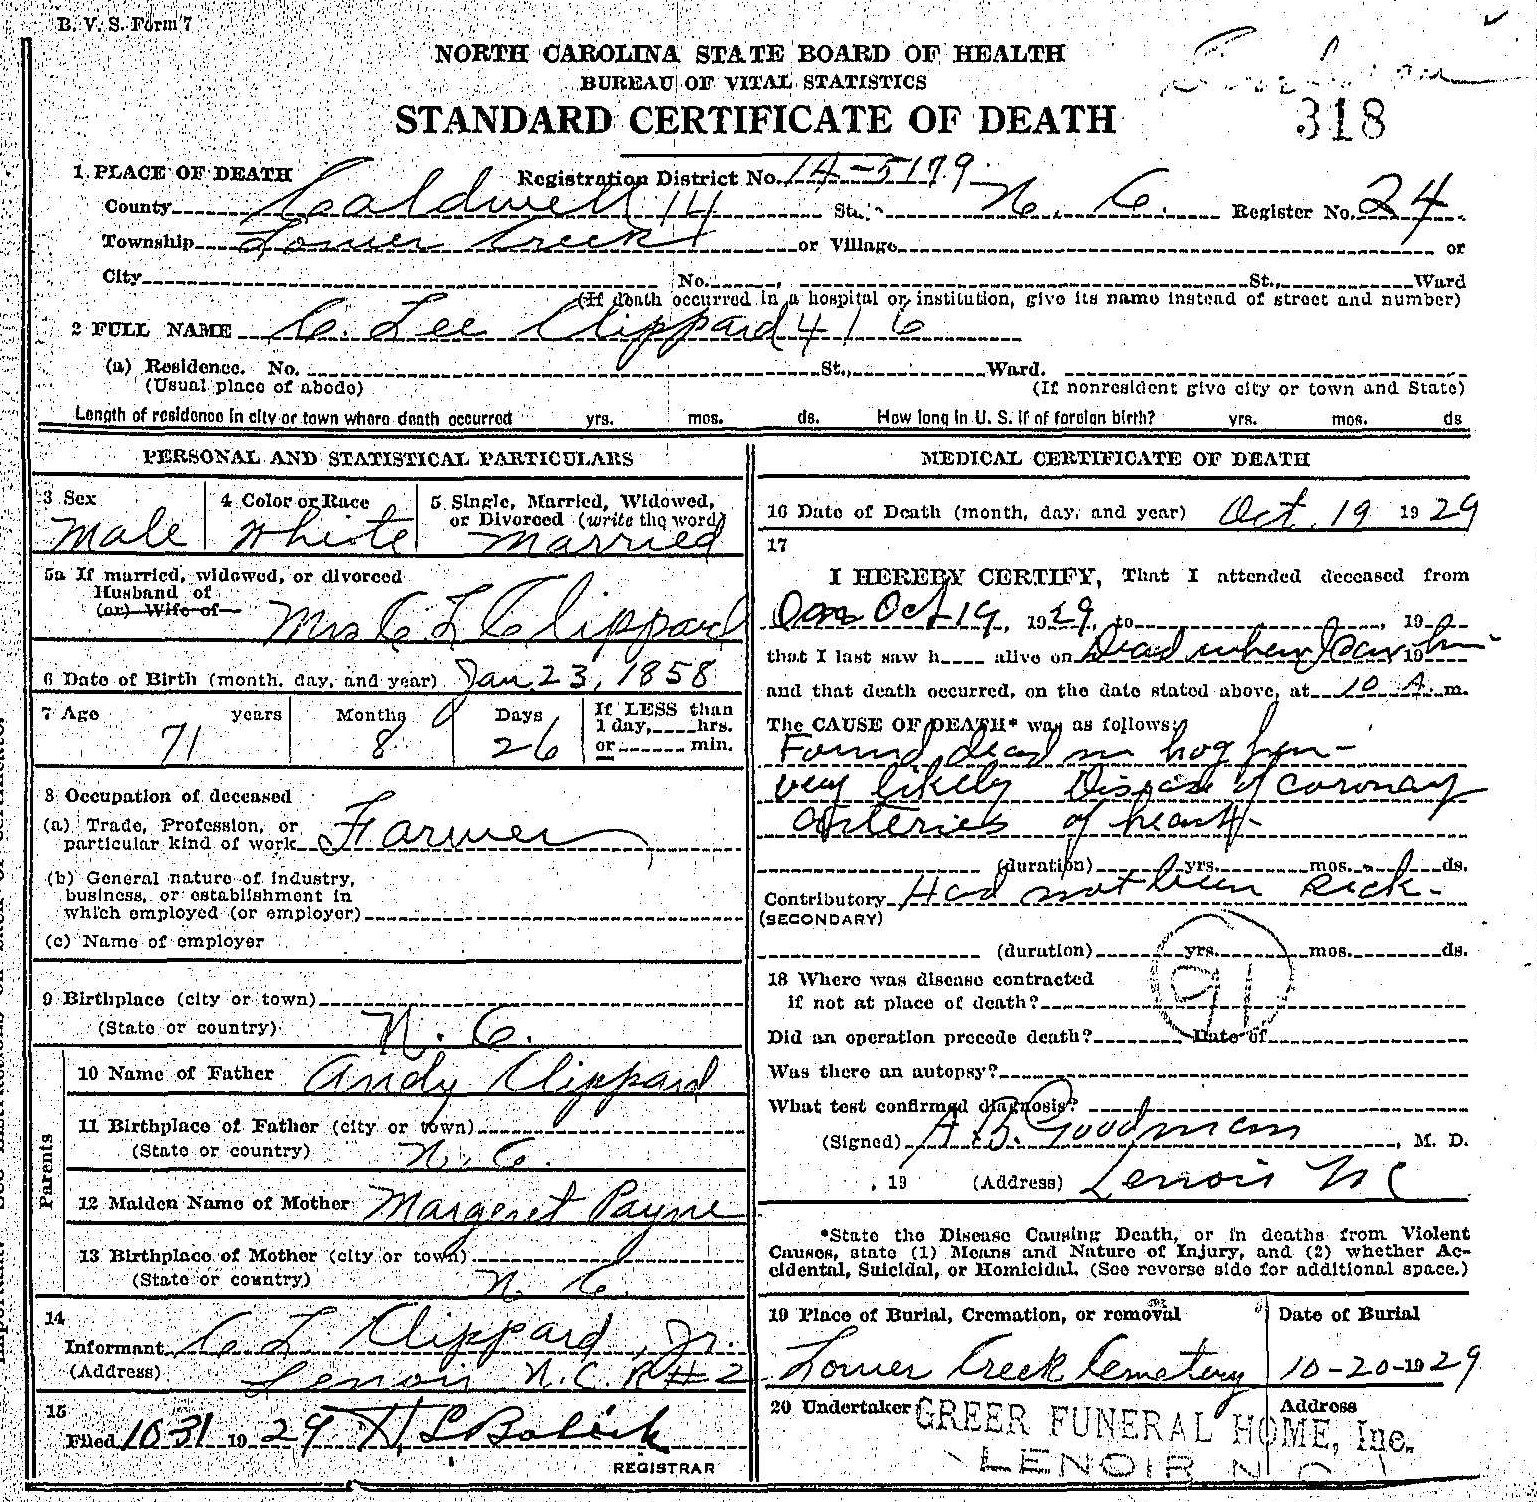 B. V. S. Form 7
NORTH CAROLINA STATE BOARD OF HEALTH
BUREAU OF VITAL STATISTICS
STANDARD CERTIFICATE OF DEATH
318
1 PLACE OF DEATH Registration District No. 14-5179
County Caldwell 14 St. N. C. Register No. 24
Township Lower Creek or Village or
City No. St., Ward
(If death occurred in a hospital or institution, give its name instead of street and number)
2 FULL NAME C. Lee Clippard 416
(a) Residence. No. St., Ward.
(Usual place of abode) (If nonresident give city or town and State)
Length of residence in city or town where death occurred yrs. mos. ds. How long in U. S. if of foreign birth? yrs. mos. ds
PERSONAL AND STATISTICAL PARTICULARS
3 Sex 4 Color or Race 5 Single, Married, Widowed,
or Divorced (write the word)
Male White Married
5a If married, widowed, or divorced
Husband of
(or) Wife of
Mrs C L Clippard
6 Date of Birth (month, day, and year) Jan 23, 1858
7 Age years Months Days If LESS than
1 day, hrs.
71 8 26 or min.
8 Occupation of deceased
(a) Trade, Profession, or
particular kind of work Farmer
(b) General nature of industry,
business, or establishment in
which employed (or employer)
(c) Name of employer
9 Birthplace (city or town)
(State or country) N. C.
Parents
10 Name of Father Andy Clippard
11 Birthplace of Father (city or town)
(State or country) N. C.
12 Maiden Name of Mother Margeret Payne
13 Birthplace of Mother (city or town)
(State or country) N C.
14
Informant C L Clippard, Jr.
(Address) Lenoir N.C. R#2
15
Filed 10 31 19 29 H L Bolick
REGISTRAR
MEDICAL CERTIFICATE OF DEATH
16 Date of Death (month, day, and year) Oct. 19 19 29
17
I HEREBY CERTIFY, That I attended deceased from
On Oct 19, 1929, to , 19
that I last saw h alive on Dead when I saw him 19
and that death occurred, on the date stated above, at 10 A. m.
The CAUSE OF DEATH* was as follows:
Found dead in hog pen -
very likely Disease of coronary
arteries of heart -
(duration) yrs. mos. ds.
Contributory Had not been sick -
(SECONDARY)
(duration) yrs. mos. ds.
91
18 Where was disease contracted
if not at place of death?
Did an operation precede death? Date of
Was there an autopsy?
What test confirmed diagnosis?
(Signed) A B Goodman, M. D.
, 19 (Address) Lenoir N C
*State the Disease Causing Death, or in deaths from Violent
Causes, state (1) Means and Nature of Injury, and (2) whether Ac-
cidental, Suicidal, or Homicidal. (See reverse side for additional space.)
19 Place of Burial, Cremation, or removal Date of Burial
Lower Creek Cemetery 10-20-1929
20 Undertaker Address
GREER FUNERAL HOME, Inc.
LENOIR N C